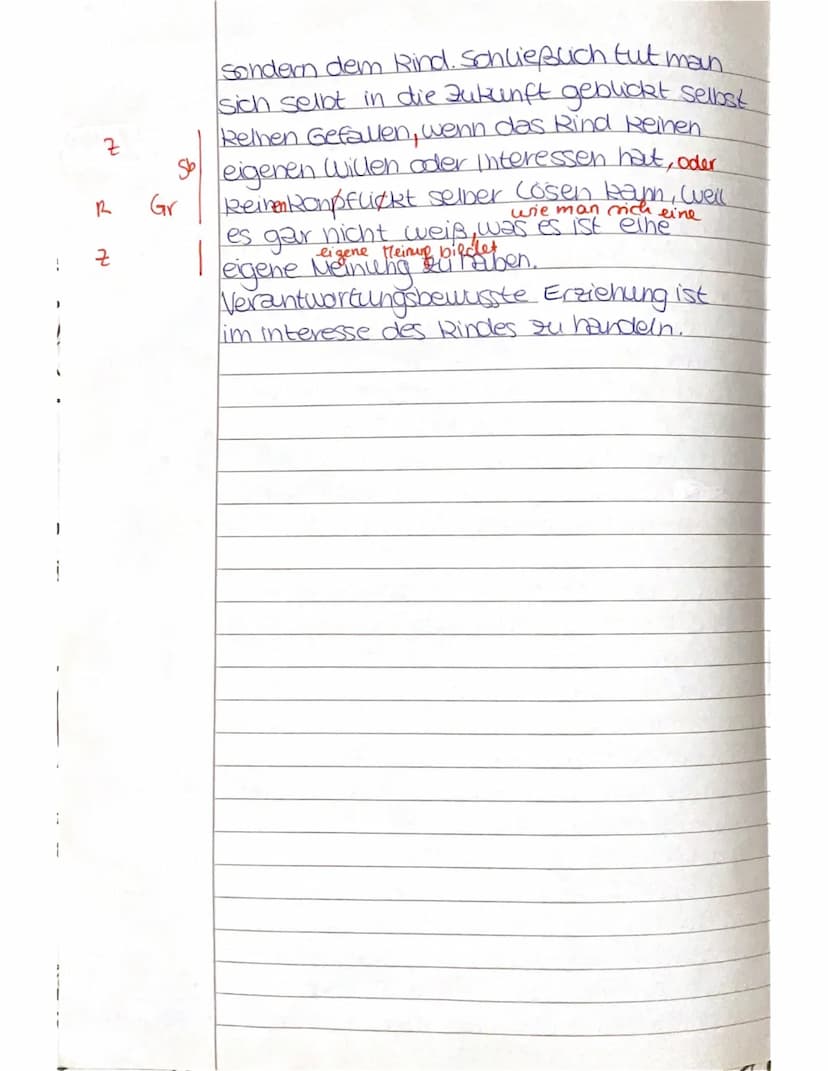 sondern dem Kind. Schließlich tut man
sich selbt in die Zukunft geblickt selbst
Z
keinen Gefallen, wenn das Kind keinen
Sb
eigenen Willen oder Interessen hat, oder
R Gr
keinen Konpflickt selber lösen kann, weil
wie man sich eine
es gar nicht weiß, was es ist eine
eigene Meinung bildet
Z
eigene Meinung zu haben.
Verantwortungsbewusste Erziehung ist
im interesse des Kindes zu handeln.